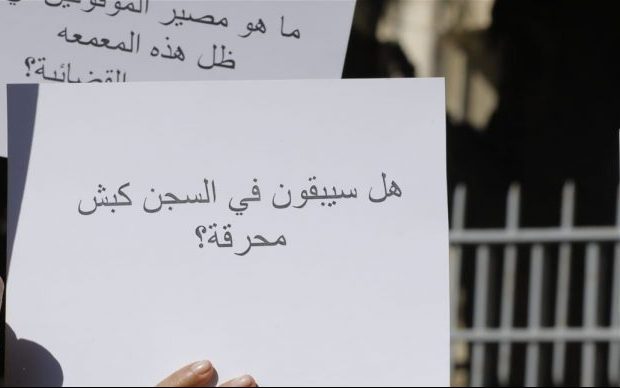 ما هو مصير الموقوفين في
ظل هذه المعمعه
القضائية؟
هل سيبقون في السجن كبش
محرقة؟